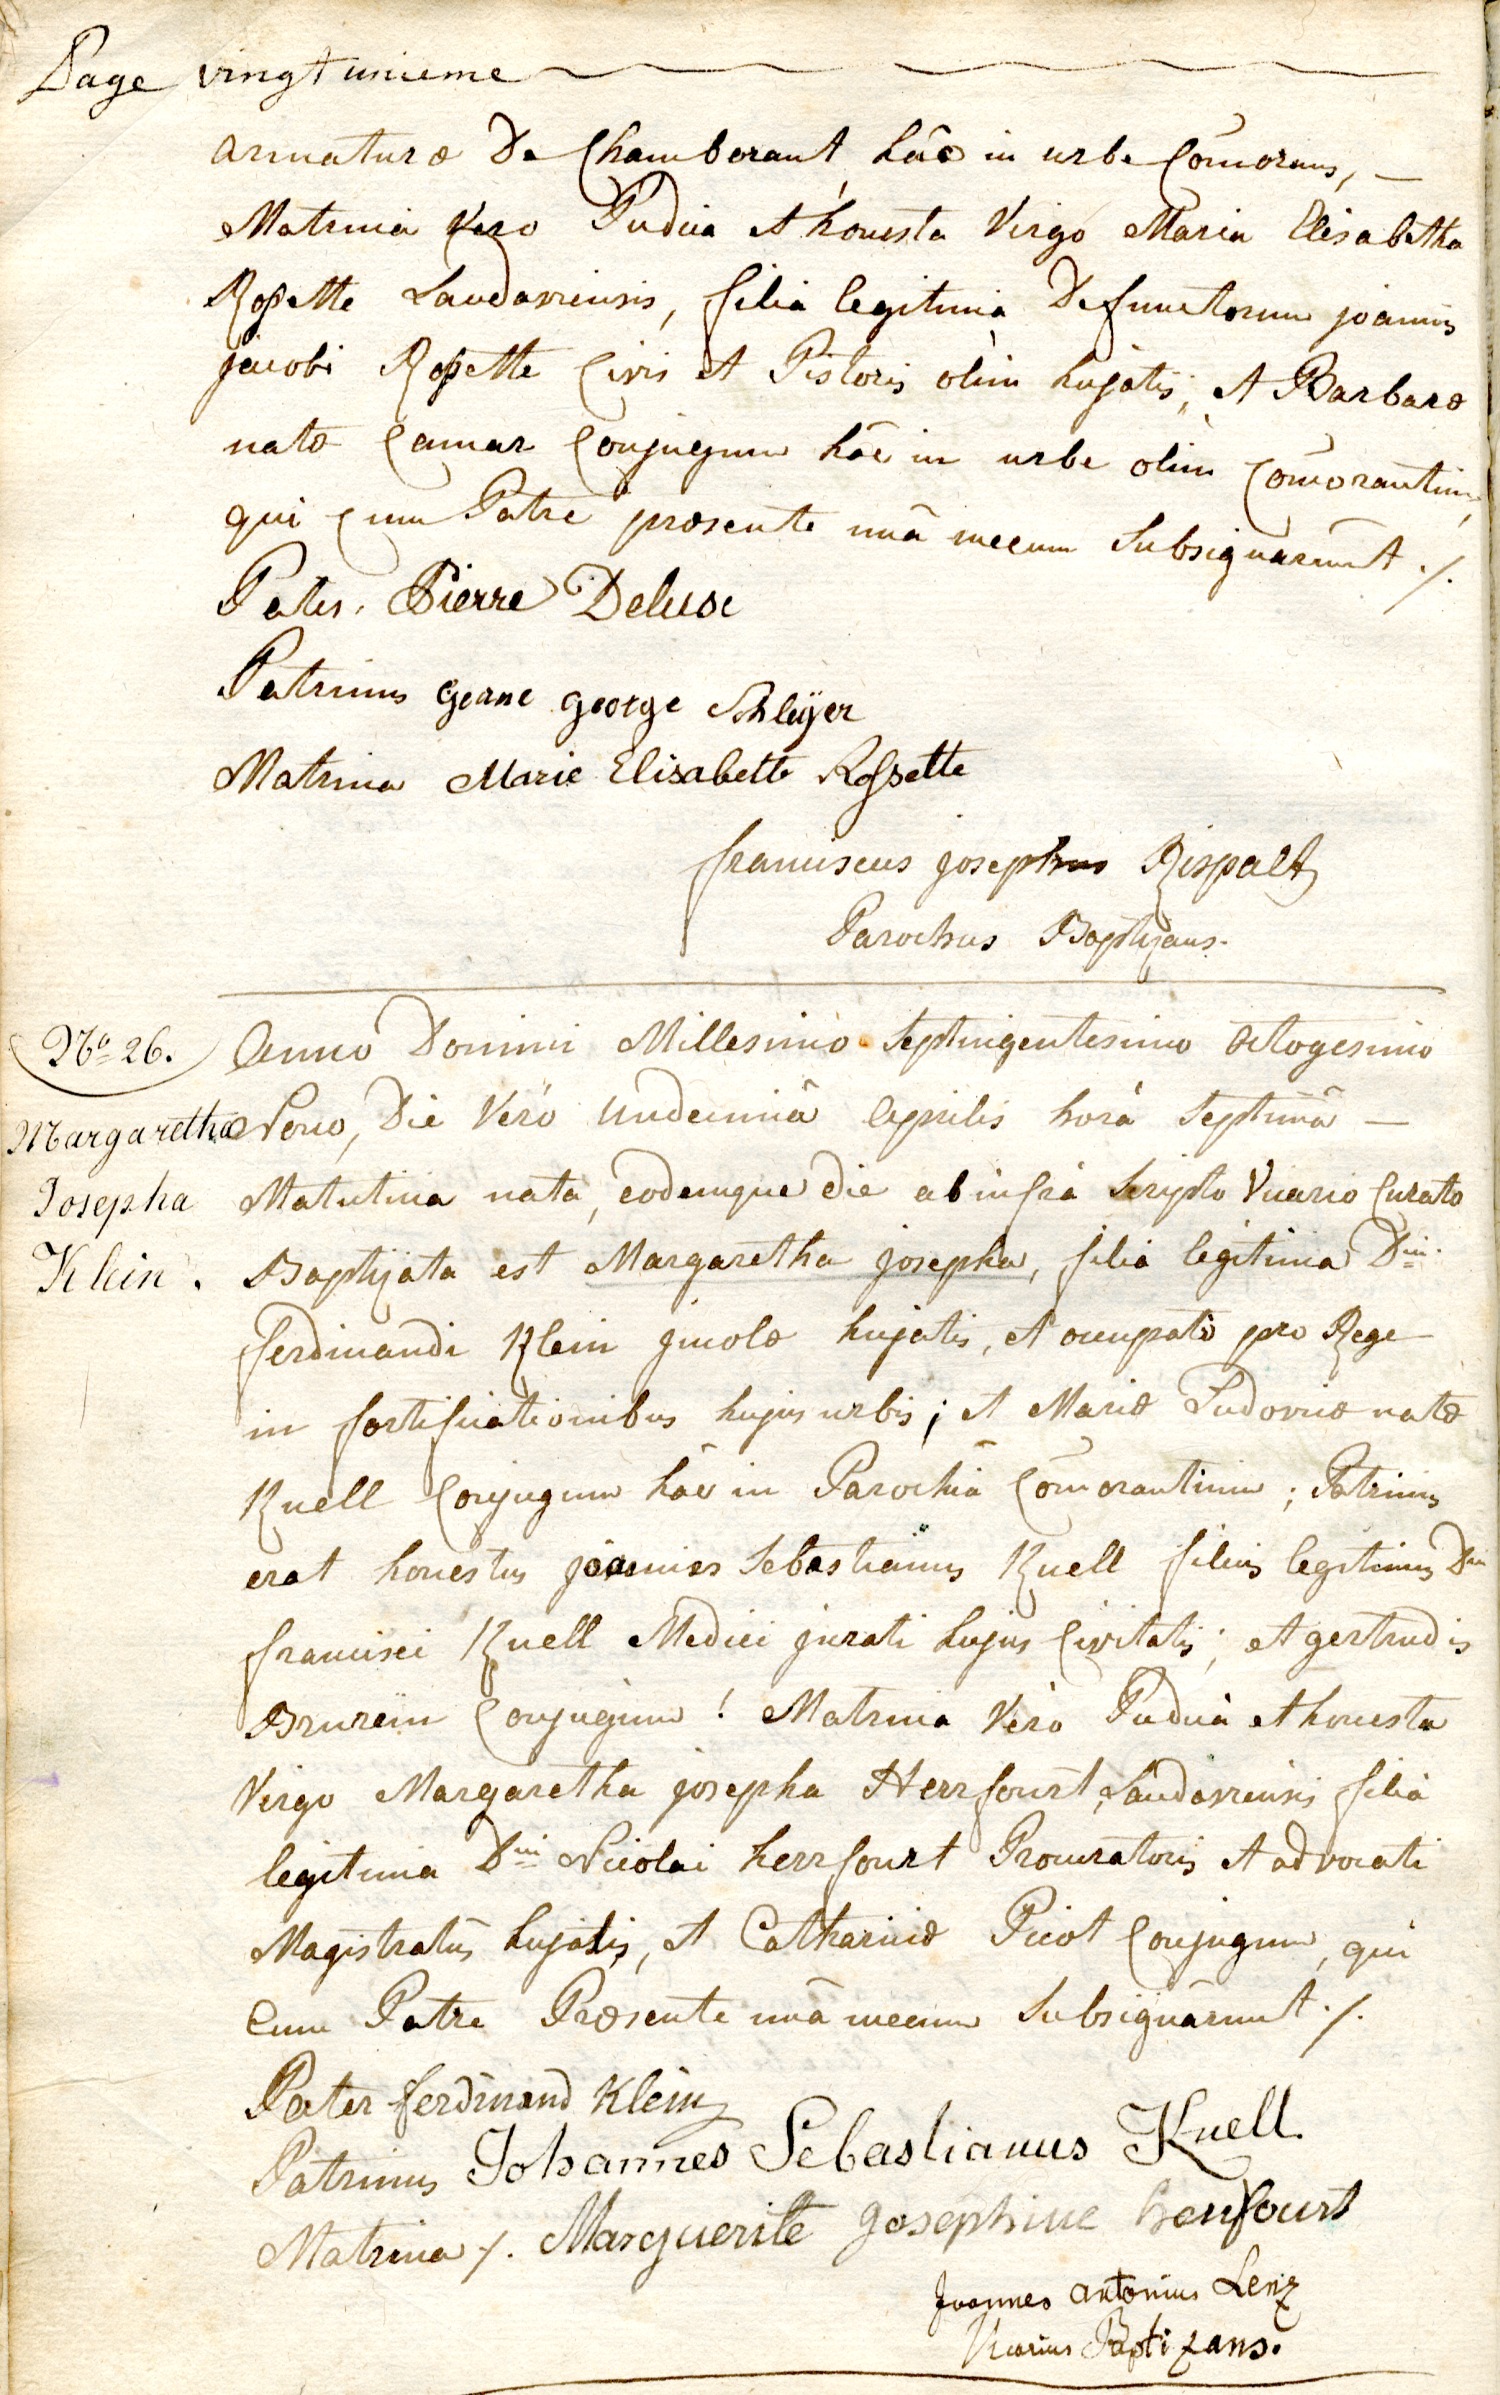 Page vingt unieme
armaturæ De Chamborant hâc in urbe Com̄orans, —
Matrina Vero Pudica et honesta Virgo Maria Elisabetha
Rossette Landaviensis, filia legitima Defunctorum joannis
jacobi Rossette Civis et Pistoris olim hujatis, et Barbaræ
natæ Camar Conjugum hâc in urbe olim Com̄orantium,
qui Cum Patre præsente unâ mecum Subsignarunt ./.
Pater. Pierre Deluse
Patrinus Geane George Schleÿer
Matrina Marie Elisabette Rossette
franciscus josephus Rispalt
Parochus Baptizans.
No 26.
Margaretha
Josepha
Klein.
Anno Domini Millesimo Septingentesimo Octogesimo
Nono, Die Verò Undecimâ Aprilis horâ Septimâ —
Matutina nata, eodemque die ab infrà Scripto Vicario Curato
Baptizata est Margaretha josepha, filia legitima Dni.
ferdinandi Klein jncolæ hujatis, et occupati pro Rege
in fortificationibus hujus urbis; et Mariæ Ludovicæ natæ
Knell Conjugum hâc in Parochiâ Com̄orantium; Patrinus
erat honestus joannes Sebastianus Knell filius legitimus Dni
francisci Knell Medici jurati hujus Civitatis; et gertrudis
Brurein Conjugum! Matrina Verò Pudica et honesta
Virgo Margaretha josepha Herrfourt, Landaviensis filia
legitima Dni Nicolai herrfourt Procuratoris et advocati
Magistratûs hujatis, et Catharinæ Picot Conjugum, qui
Cum Patre Præsente unâ mecum Subsignârunt ./.
Pater ferdinand Klein
Patrinus Johannes Sebastianus Knell.
Matrina ./. Marguerite Josephine herfourt
Joannes antonius Lenz
Vicarius Baptizans.